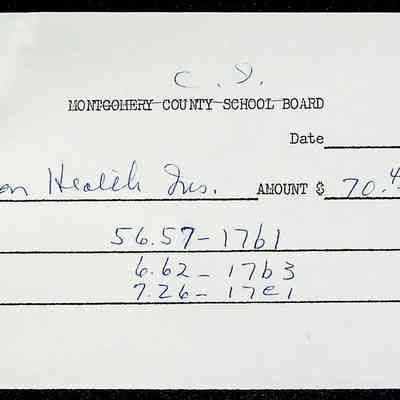 C. I.
MONTGOMERY COUNTY SCHOOL BOARD
Date
on Health Ins. AMOUNT $ 70.4
56.57-17b1
6.62-17b3
7.26-17e1